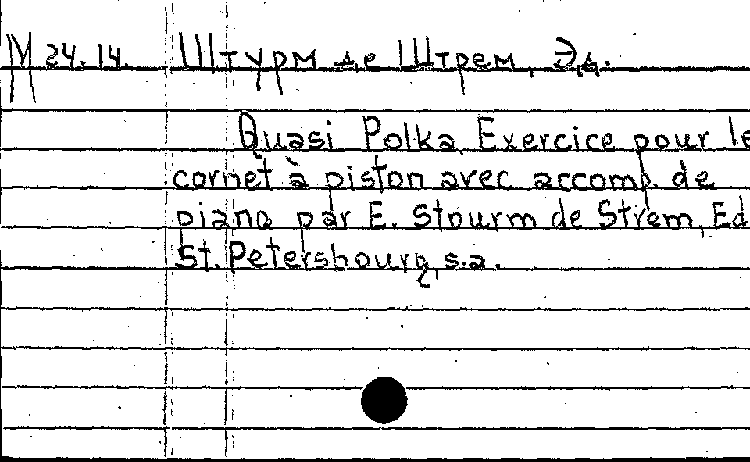 М 24.14. Штурм де Штрем, Эд.
Quasi Polka Exercice pour le
cornet à piston avec accomp. de
piano par E. Stourm de Strem, Ed
St. Petersbourg, s.a.